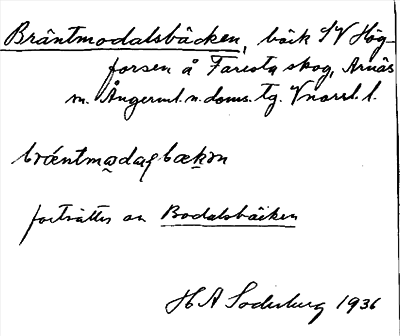 Bräntmodalsbäcken, bäck SV Hög-
forsen å Faresta skog, Arnäs
sn. Ångerml. n. doms. tg. Vnorrl. l.
bræntmodaɽbækən
fortsättes av Bodalsbäcken
H A Söderberg 1936